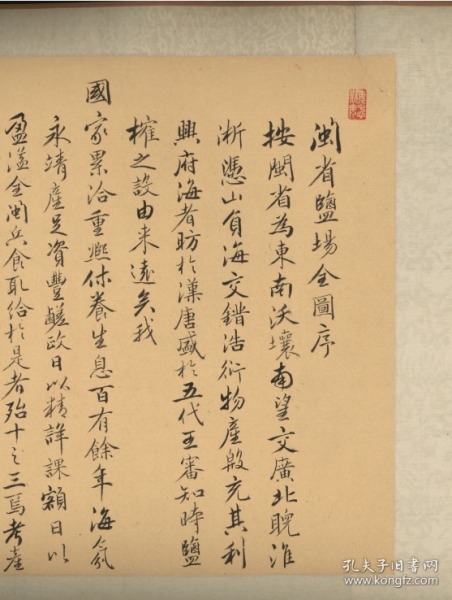 閩省鹽場全圖序
按閩省為東南沃壤南望交廣北睨淮
浙憑山負海交錯浩衍物產殷充其利
興府海者昉於漢唐盛於五代王審知時鹽
榷之設由来遠矣我
國家累洽重熙休養生息百有餘年海氛
永靖產足資豐鹺政日以精詳課額日以
盈溢全閩兵食取給於是者殆十之三焉考產
孔夫子旧书网
www.kongfz.com